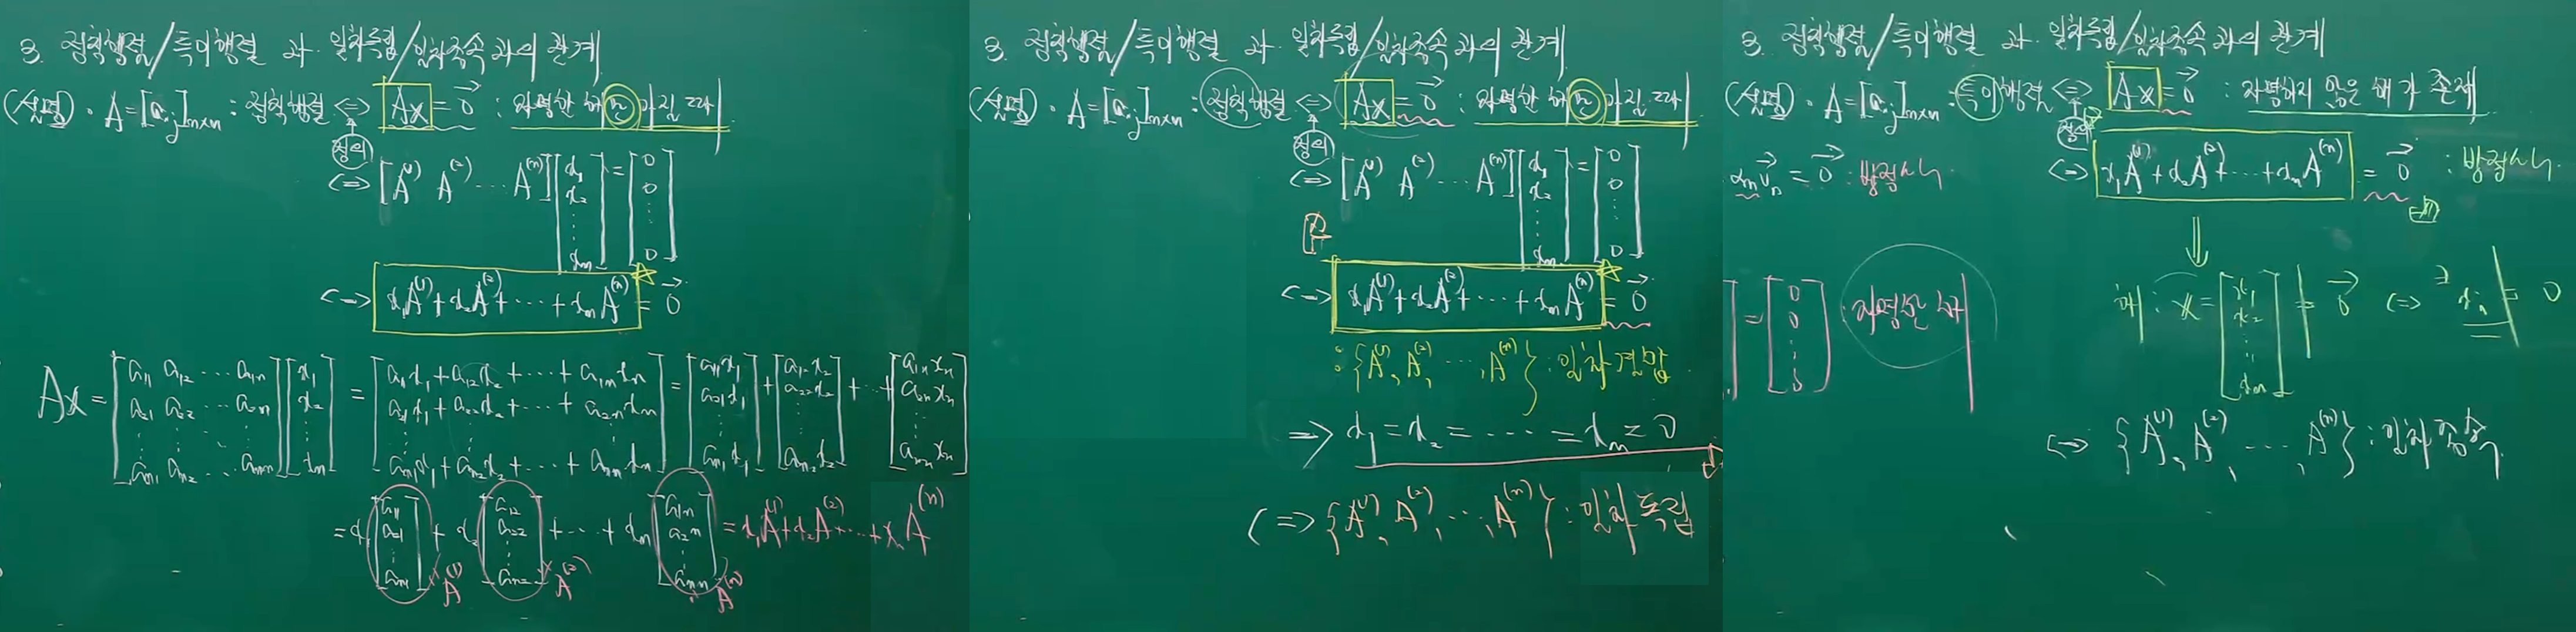 3. 정칙행렬/특이행렬 과 일차독립/일차종속 과의 관계
(설명) · A=[aᵢⱼ]ₙₓₙ : 정칙행렬 <=> Ax = 0⃗ : 자명한 해만 가진다
정의
<=> [A⁽¹⁾ A⁽²⁾ ... A⁽ⁿ⁾] [x₁ x₂ ⋮ xₙ] = [0 0 ⋮ 0]
<=> x₁A⁽¹⁾+x₂A⁽²⁾+...+xₙA⁽ⁿ⁾ = 0⃗
Ax = [a₁₁ a₁₂ ... a₁ₙ; a₂₁ a₂₂ ... a₂ₙ; ⋮; aₙ₁ aₙ₂ ... aₙₙ] [x₁ x₂ ⋮ xₙ] = [a₁₁x₁+a₁₂x₂+...+a₁ₙxₙ; a₂₁x₁+a₂₂x₂+...+a₂ₙxₙ; ⋮; aₙ₁x₁+aₙ₂x₂+...+aₙₙxₙ] = [a₁₁x₁ a₂₁x₁ ⋮ aₙ₁x₁] + [a₁₂x₂ a₂₂x₂ ⋮ aₙ₂x₂] + ... + [a₁ₙxₙ a₂ₙxₙ ⋮ aₙₙxₙ]
= x₁[a₁₁ a₂₁ ⋮ aₙ₁] + x₂[a₁₂ a₂₂ ⋮ aₙ₂] + ... + xₙ[a₁ₙ a₂ₙ ⋮ aₙₙ] = x₁A⁽¹⁾+x₂A⁽²⁾+...+xₙA⁽ⁿ⁾
A⁽¹⁾ A⁽²⁾ A⁽ⁿ⁾
3. 정칙행렬/특이행렬 과 일차독립/일차종속 과의 관계
(설명) · A=[aᵢⱼ]ₙₓₙ : 정칙행렬 <=> Ax = 0⃗ : 자명한 해만 가진다
정의
<=> [A⁽¹⁾ A⁽²⁾ ... A⁽ⁿ⁾] [x₁ x₂ ⋮ xₙ] = [0 0 ⋮ 0]
<=> x₁A⁽¹⁾+x₂A⁽²⁾+...+xₙA⁽ⁿ⁾ = 0⃗
: {A⁽¹⁾, A⁽²⁾, ..., A⁽ⁿ⁾} : 일차결합
=> x₁ = x₂ = ... = xₙ = 0
<=> {A⁽¹⁾, A⁽²⁾, ..., A⁽ⁿ⁾} : 일차독립
3. 정칙행렬/특이행렬 과 일차독립/일차종속 과의 관계
(설명) · A=[aᵢⱼ]ₙₓₙ : 특이행렬 <=> Ax = 0⃗ : 자명하지 않은 해가 존재
정의
αₙv⃗ₙ = 0⃗ : 방정식
<=> x₁A⁽¹⁾+x₂A⁽²⁾+...+xₙA⁽ⁿ⁾ = 0⃗ : 방정식
= [0 0 ⋮ 0] : 자명한 해
해 : x = [x₁ x₂ ⋮ xₙ] ≠ 0⃗ <=> ∃xᵢ ≠ 0
<=> {A⁽¹⁾, A⁽²⁾, ..., A⁽ⁿ⁾} : 일차종속